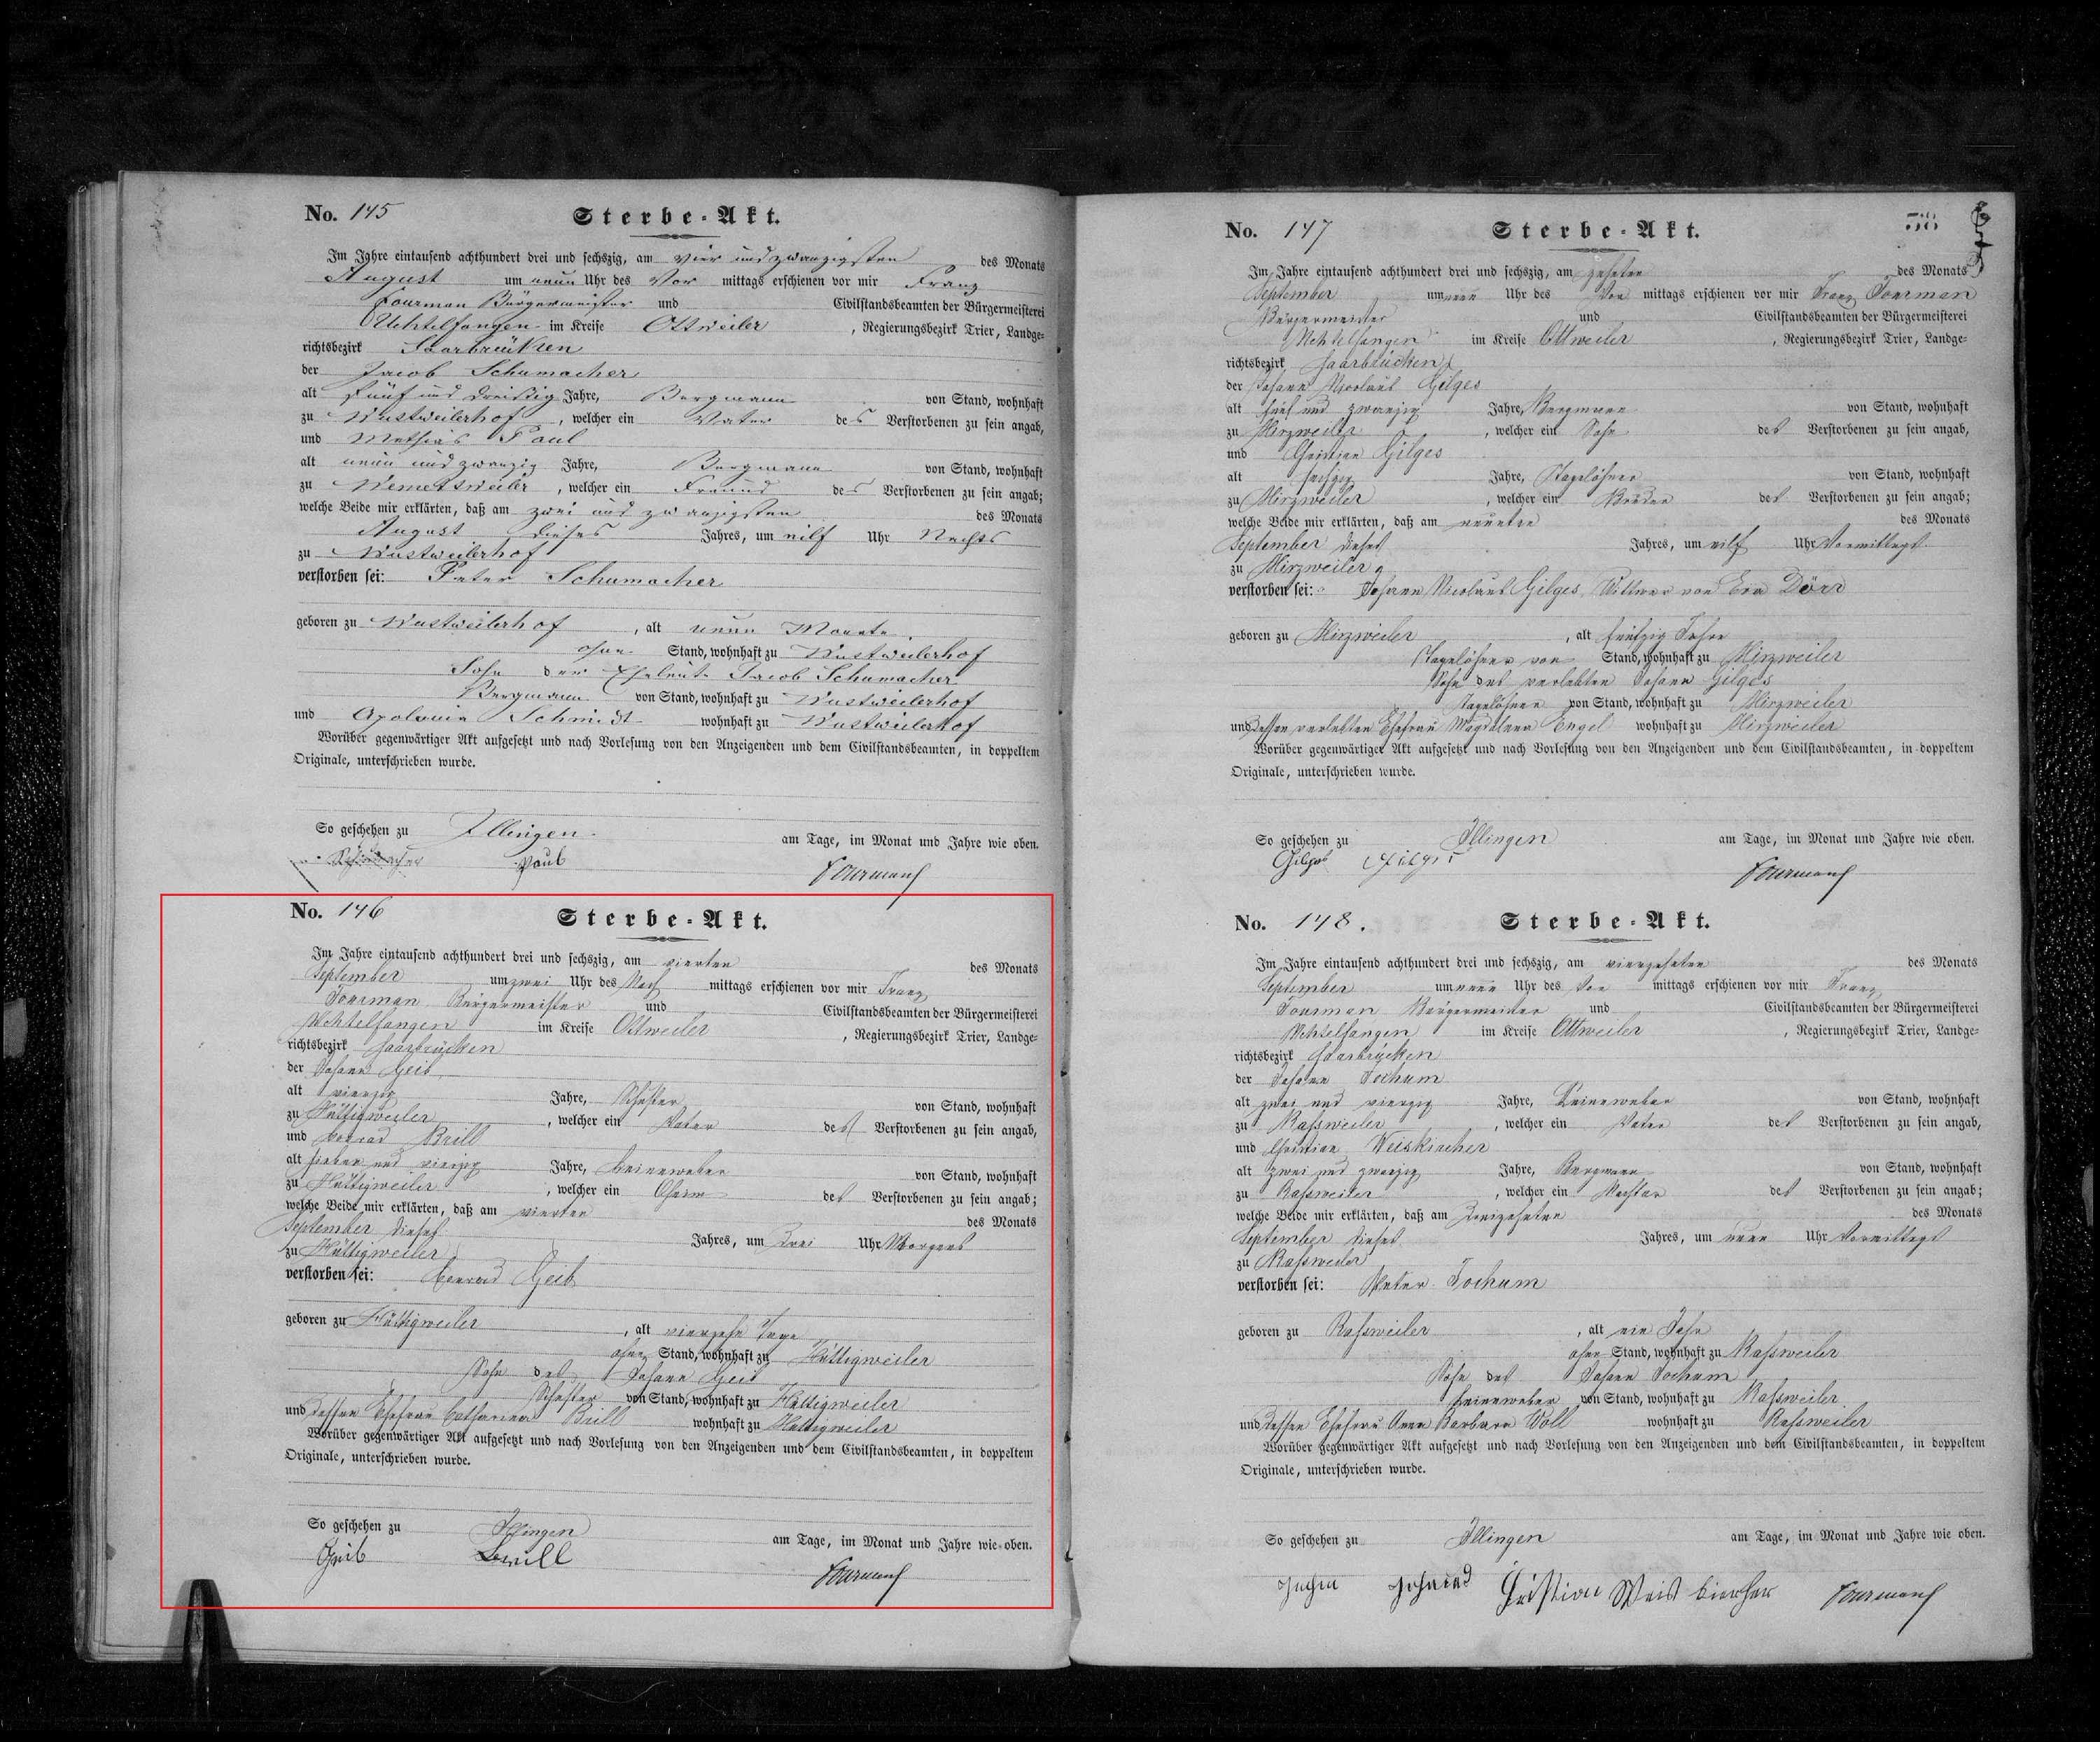 No. 145 Sterbe-Akt.
Im Jahre eintausend achthundert drei und sechszig, am vier und zwanzigsten des Monats
August um neun Uhr des Vor mittags erschienen vor mir Franz
Fourman Bürgermeister und Civilstandsbeamten der Bürgermeisterei
Uchtelfangen im Kreise Ottweiler, Regierungsbezirk Trier, Landge=
richtsbezirk Saarbrücken
der Jacob Schumacher
alt fünf und dreißig Jahre, Bergmann von Stand, wohnhaft
zu Wustweilerhof, welcher ein Vater des Verstorbenen zu sein angab,
und Mathias Paul
alt neun und zwanzig Jahre, Bergmann von Stand, wohnhaft
zu Wemetsweiler, welcher ein Freund des Verstorbenen zu sein angab;
welche Beide mir erklärten, daß am zwei und zwanzigsten des Monats
August dieses Jahres, um eilf Uhr Nachts
zu Wustweilerhof
verstorben sei: Peter Schumacher
geboren zu Wustweilerhof, alt neun Monate
ohne Stand, wohnhaft zu Wustweilerhof
Sohn der Eheleute Jacob Schumacher
Bergmann von Stand, wohnhaft zu Wustweilerhof
und Apolonia Schmidt wohnhaft zu Wustweilerhof
Worüber gegenwärtiger Akt aufgesetzt und nach Vorlesung von den Anzeigenden und dem Civilstandsbeamten, in doppeltem
Originale, unterschrieben wurde.
So geschehen zu Illingen am Tage, im Monat und Jahre wie oben.
Paul Fourman
No. 146 Sterbe-Akt.
Im Jahre eintausend achthundert drei und sechszig, am vierten des Monats
September um zwei Uhr des Nach mittags erschienen vor mir Franz
Fourman Bürgermeister und Civilstandsbeamten der Bürgermeisterei
Uchtelfangen im Kreise Ottweiler, Regierungsbezirk Trier, Landge=
richtsbezirk Saarbrücken
der Johann Geib
alt vierzig Jahre, Schuster von Stand, wohnhaft
zu Hüttigweiler, welcher ein Vater des Verstorbenen zu sein angab,
und Conrad Brill
alt sieben und vierzig Jahre, Leineweber von Stand, wohnhaft
zu Hüttigweiler, welcher ein Oheim des Verstorbenen zu sein angab;
welche Beide mir erklärten, daß am vierten des Monats
September dieses Jahres, um drei Uhr Morgens
zu Hüttigweiler
verstorben sei: Conrad Geib
geboren zu Hüttigweiler, alt vierzehn Tage
ohne Stand, wohnhaft zu Hüttigweiler
Sohn des Johann Geib
Schuster von Stand, wohnhaft zu Hüttigweiler
und dessen Ehefrau Catharina Brill wohnhaft zu Hüttigweiler
Worüber gegenwärtiger Akt aufgesetzt und nach Vorlesung von den Anzeigenden und dem Civilstandsbeamten, in doppeltem
Originale, unterschrieben wurde.
So geschehen zu Illingen am Tage, im Monat und Jahre wie oben.
Geib Brill Fourman
58
No. 147 Sterbe-Akt.
Im Jahre eintausend achthundert drei und sechszig, am zehnten des Monats
September um neun Uhr des Vor mittags erschienen vor mir Franz Fourman
Bürgermeister und Civilstandsbeamten der Bürgermeisterei
Uchtelfangen im Kreise Ottweiler, Regierungsbezirk Trier, Landge=
richtsbezirk Saarbrücken
der Johann Nicolaus Gilges
alt fünf und zwanzig Jahre, Bergmann von Stand, wohnhaft
zu Hirzweiler, welcher ein Sohn des Verstorbenen zu sein angab,
und Christian Gilges
alt sechzig Jahre, Tagelöhner von Stand, wohnhaft
zu Hirzweiler, welcher ein Bruder des Verstorbenen zu sein angab;
welche Beide mir erklärten, daß am neunten des Monats
September dieses Jahres, um eilf Uhr Vormittags
zu Hirzweiler
verstorben sei: Johann Nicolaus Gilges, Wittwer von Eva Dörr
geboren zu Hirzweiler, alt fünfzig Jahre
Tagelöhner von Stand, wohnhaft zu Hirzweiler
Sohn des verlebten Johann Gilges
Tagelöhner von Stand, wohnhaft zu Hirzweiler
und dessen verlebten Ehefrau Magdalena Engel wohnhaft zu Hirzweiler
Worüber gegenwärtiger Akt aufgesetzt und nach Vorlesung von den Anzeigenden und dem Civilstandsbeamten, in doppeltem
Originale, unterschrieben wurde.
So geschehen zu Illingen am Tage, im Monat und Jahre wie oben.
Gilges Gilges Fourman
No. 148. Sterbe-Akt.
Im Jahre eintausend achthundert drei und sechszig, am vierzehnten des Monats
September um neun Uhr des Vor mittags erschienen vor mir Franz
Fourman Bürgermeister und Civilstandsbeamten der Bürgermeisterei
Uchtelfangen im Kreise Ottweiler, Regierungsbezirk Trier, Landge=
richtsbezirk Saarbrücken
der Johann Jochum
alt zwei und vierzig Jahre, Leineweber von Stand, wohnhaft
zu Raßweiler, welcher ein Vater des Verstorbenen zu sein angab,
und Christian Weiskircher
alt zwei und zwanzig Jahre, Bergmann von Stand, wohnhaft
zu Raßweiler, welcher ein Nachbar des Verstorbenen zu sein angab;
welche Beide mir erklärten, daß am dreizehnten des Monats
September dieses Jahres, um neun Uhr Vormittags
zu Raßweiler
verstorben sei: Peter Jochum
geboren zu Raßweiler, alt ein Jahr
ohne Stand, wohnhaft zu Raßweiler
Sohn des Johann Jochum
Leineweber von Stand, wohnhaft zu Raßweiler
und dessen Ehefrau Anna Barbara Woll wohnhaft zu Raßweiler
Worüber gegenwärtiger Akt aufgesetzt und nach Vorlesung von den Anzeigenden und dem Civilstandsbeamten, in doppeltem
Originale, unterschrieben wurde.
So geschehen zu Illingen am Tage, im Monat und Jahre wie oben.
Christian Fourman